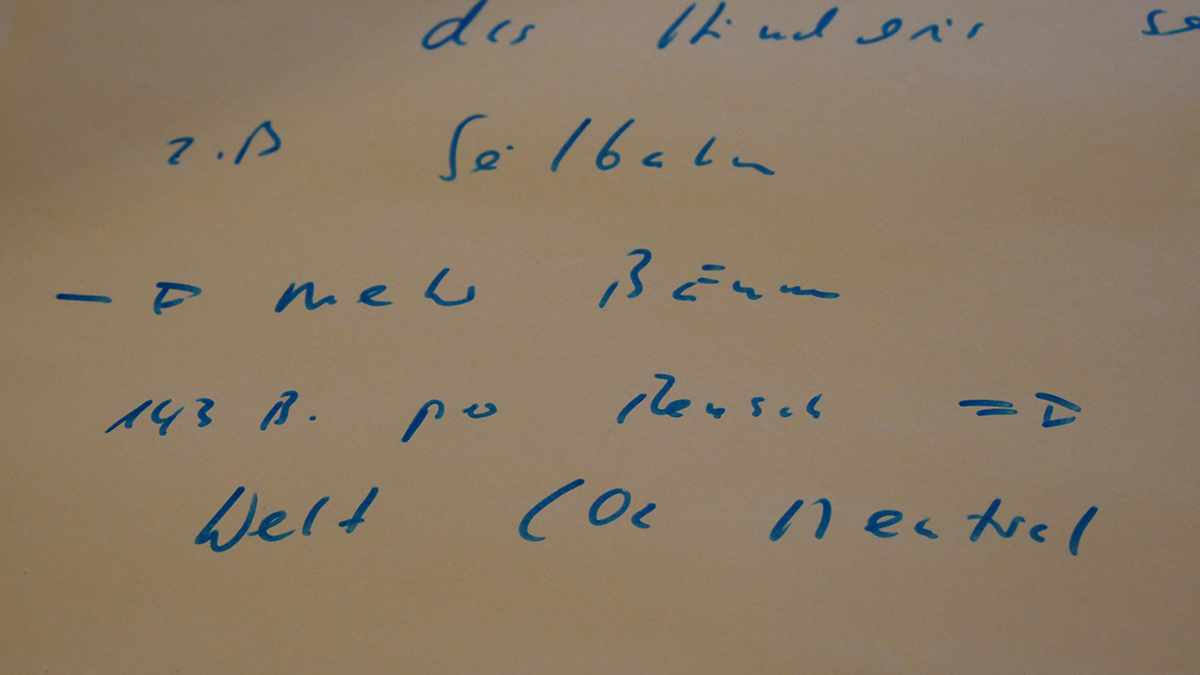 des Hindernis se
z.B Seilbahn
-> mehr Bäume
143 B. pro Mensch =>
Welt CO2 Neutral